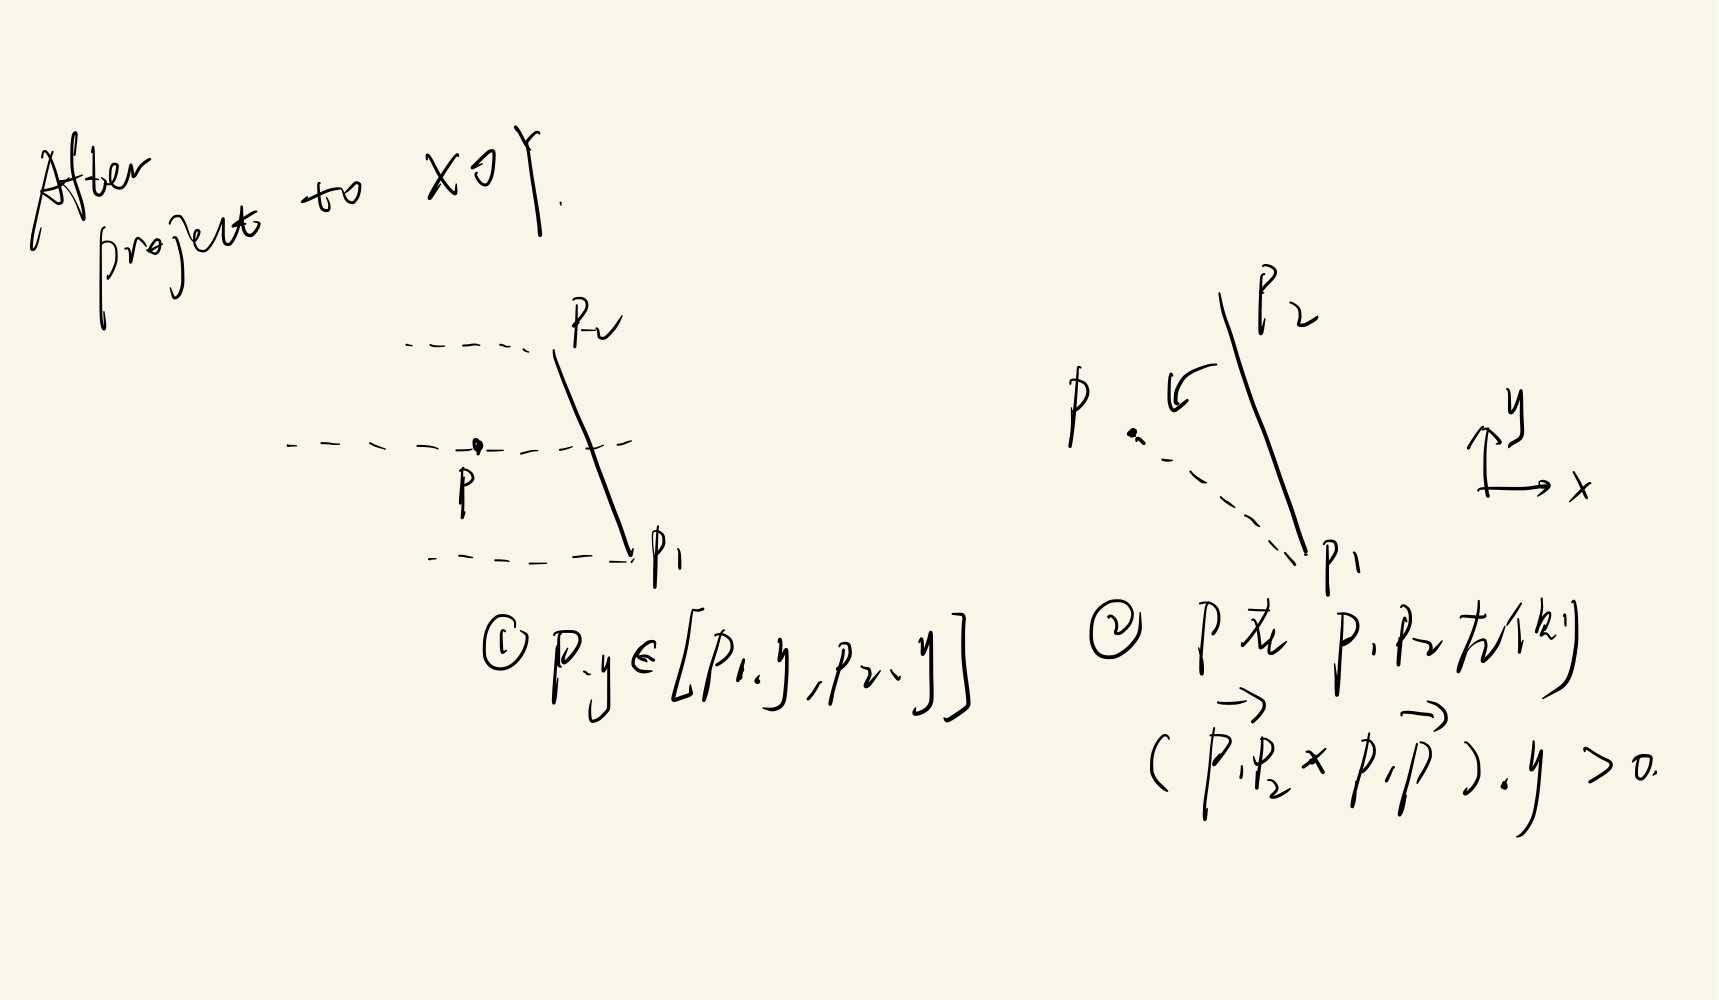 After
project to XOY.
P2
P
P1
① P.y ∈ [P1.y, P2.y]
P2
P
P1
y
x
② P在 P1P2左侧
(P1P2 × P1P).y > 0.